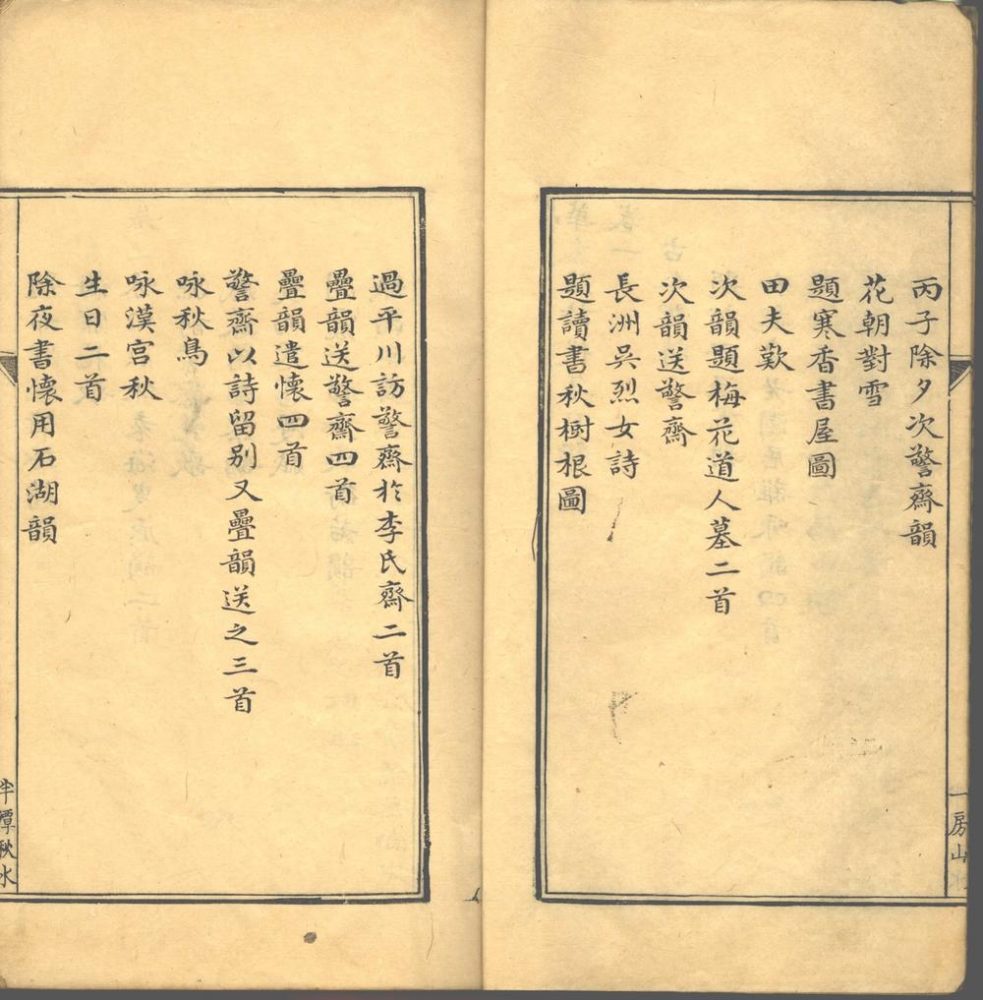 丙子除夕次警齋韻
花朝對雪
題寒香書屋圖
田夫歎
次韻題梅花道人墓二首
次韻送警齋
長洲吳烈女詩
題讀書秋樹根圖
一房山
過平川訪警齋於李氏齋二首
疊韻送警齋四首
疊韻遣懷四首
警齋以詩留别又疊韻送之三首
咏秋鳥
咏漢宮秋
生日二首
除夜書懷用石湖韻
半潭秋水